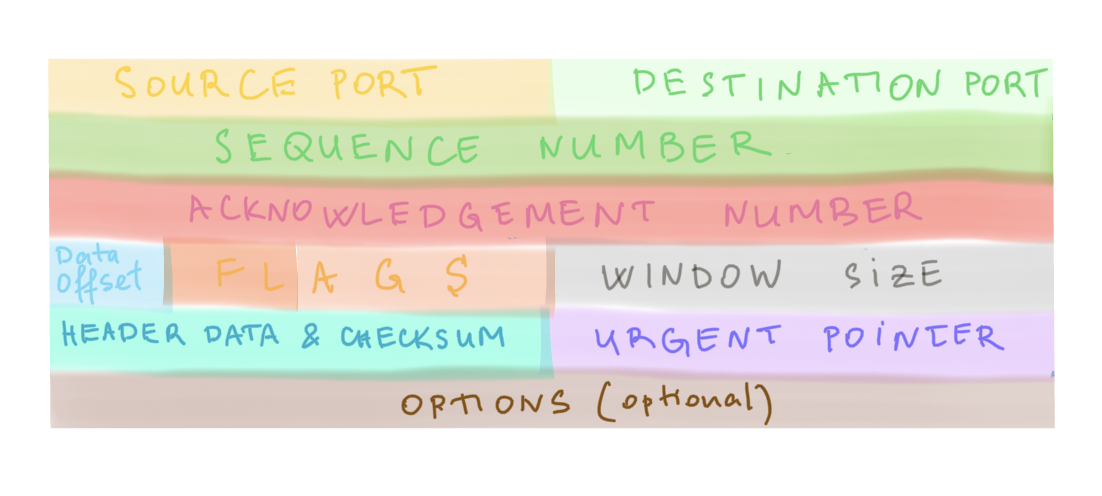 SOURCE PORT DESTINATION PORT
SEQUENCE NUMBER
ACKNOWLEDGEMENT NUMBER
Data
Offset FLAGS WINDOW SiZE
HEADER DATA & CHECKSUM URGENT POiNTER
OPTIONS (optional)